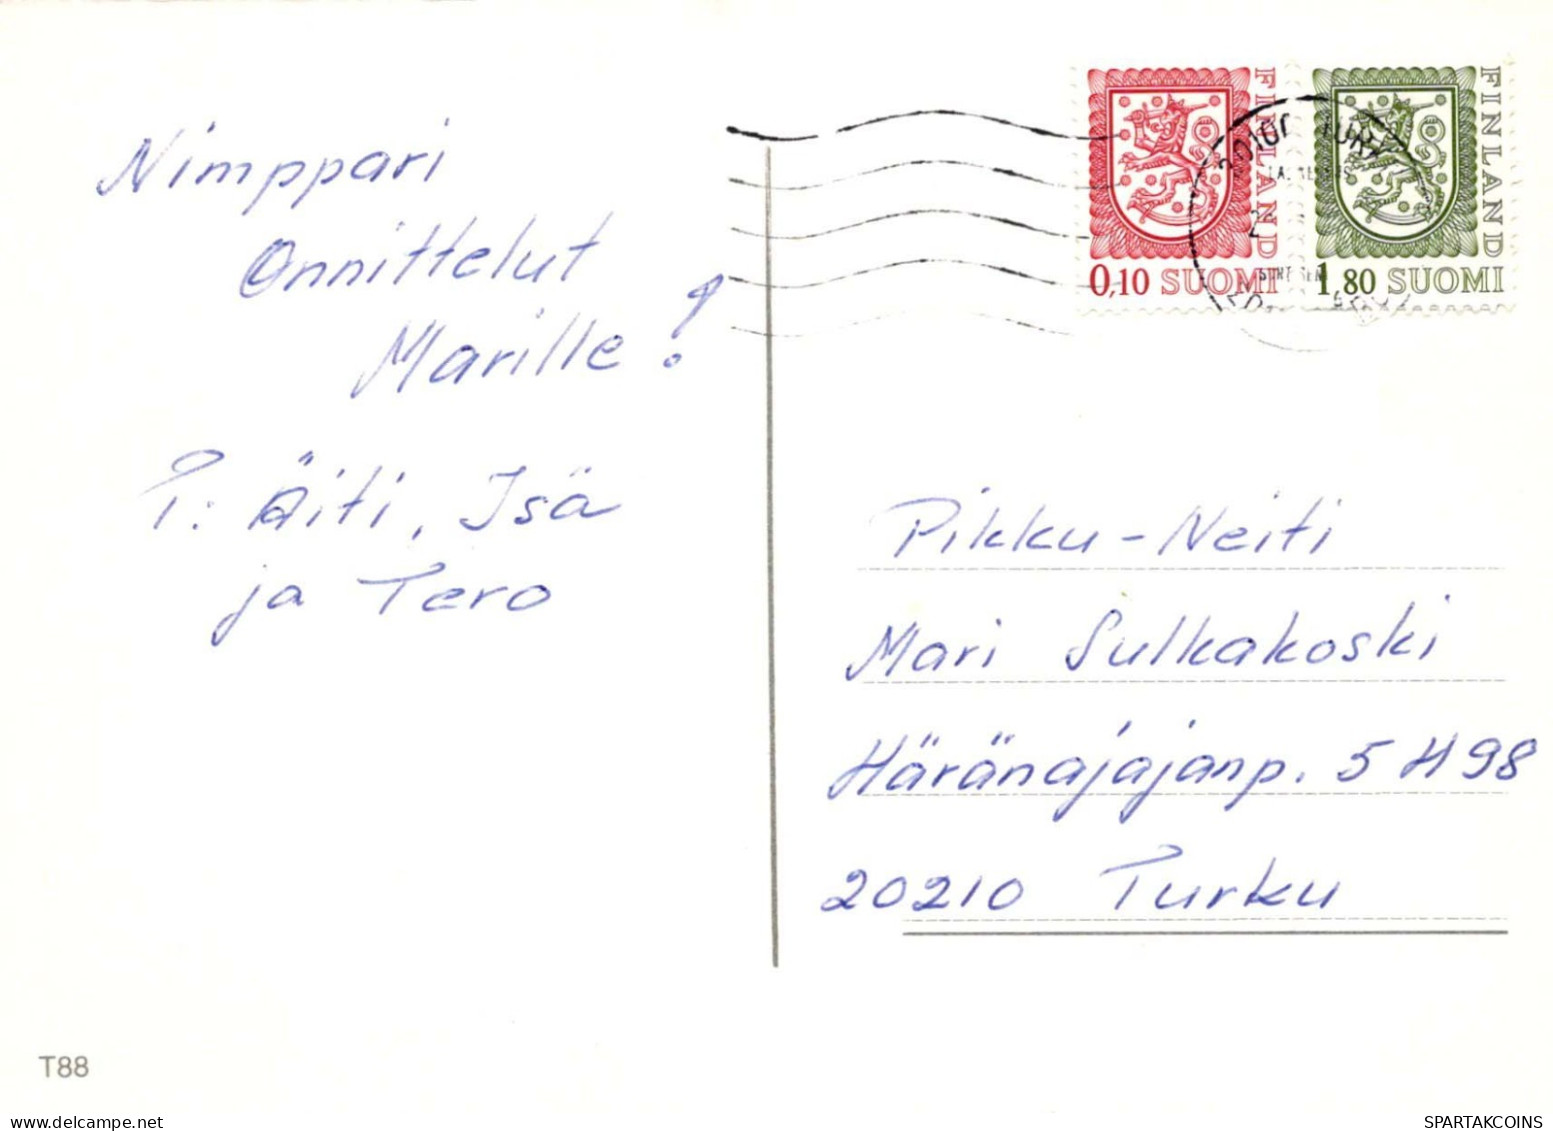 Nimppari
Onnittelut
Marille!
T: Äiti, Isä
ja Tero
FINLAND
0,10 SUOMI
FINLAND
1,80 SUOMI
Pikku-Neiti
Mari Sulkakoski
Häränajajanp. 5 H 98
20210 Turku
T88
delcampe.net
SPARTAKCOINS